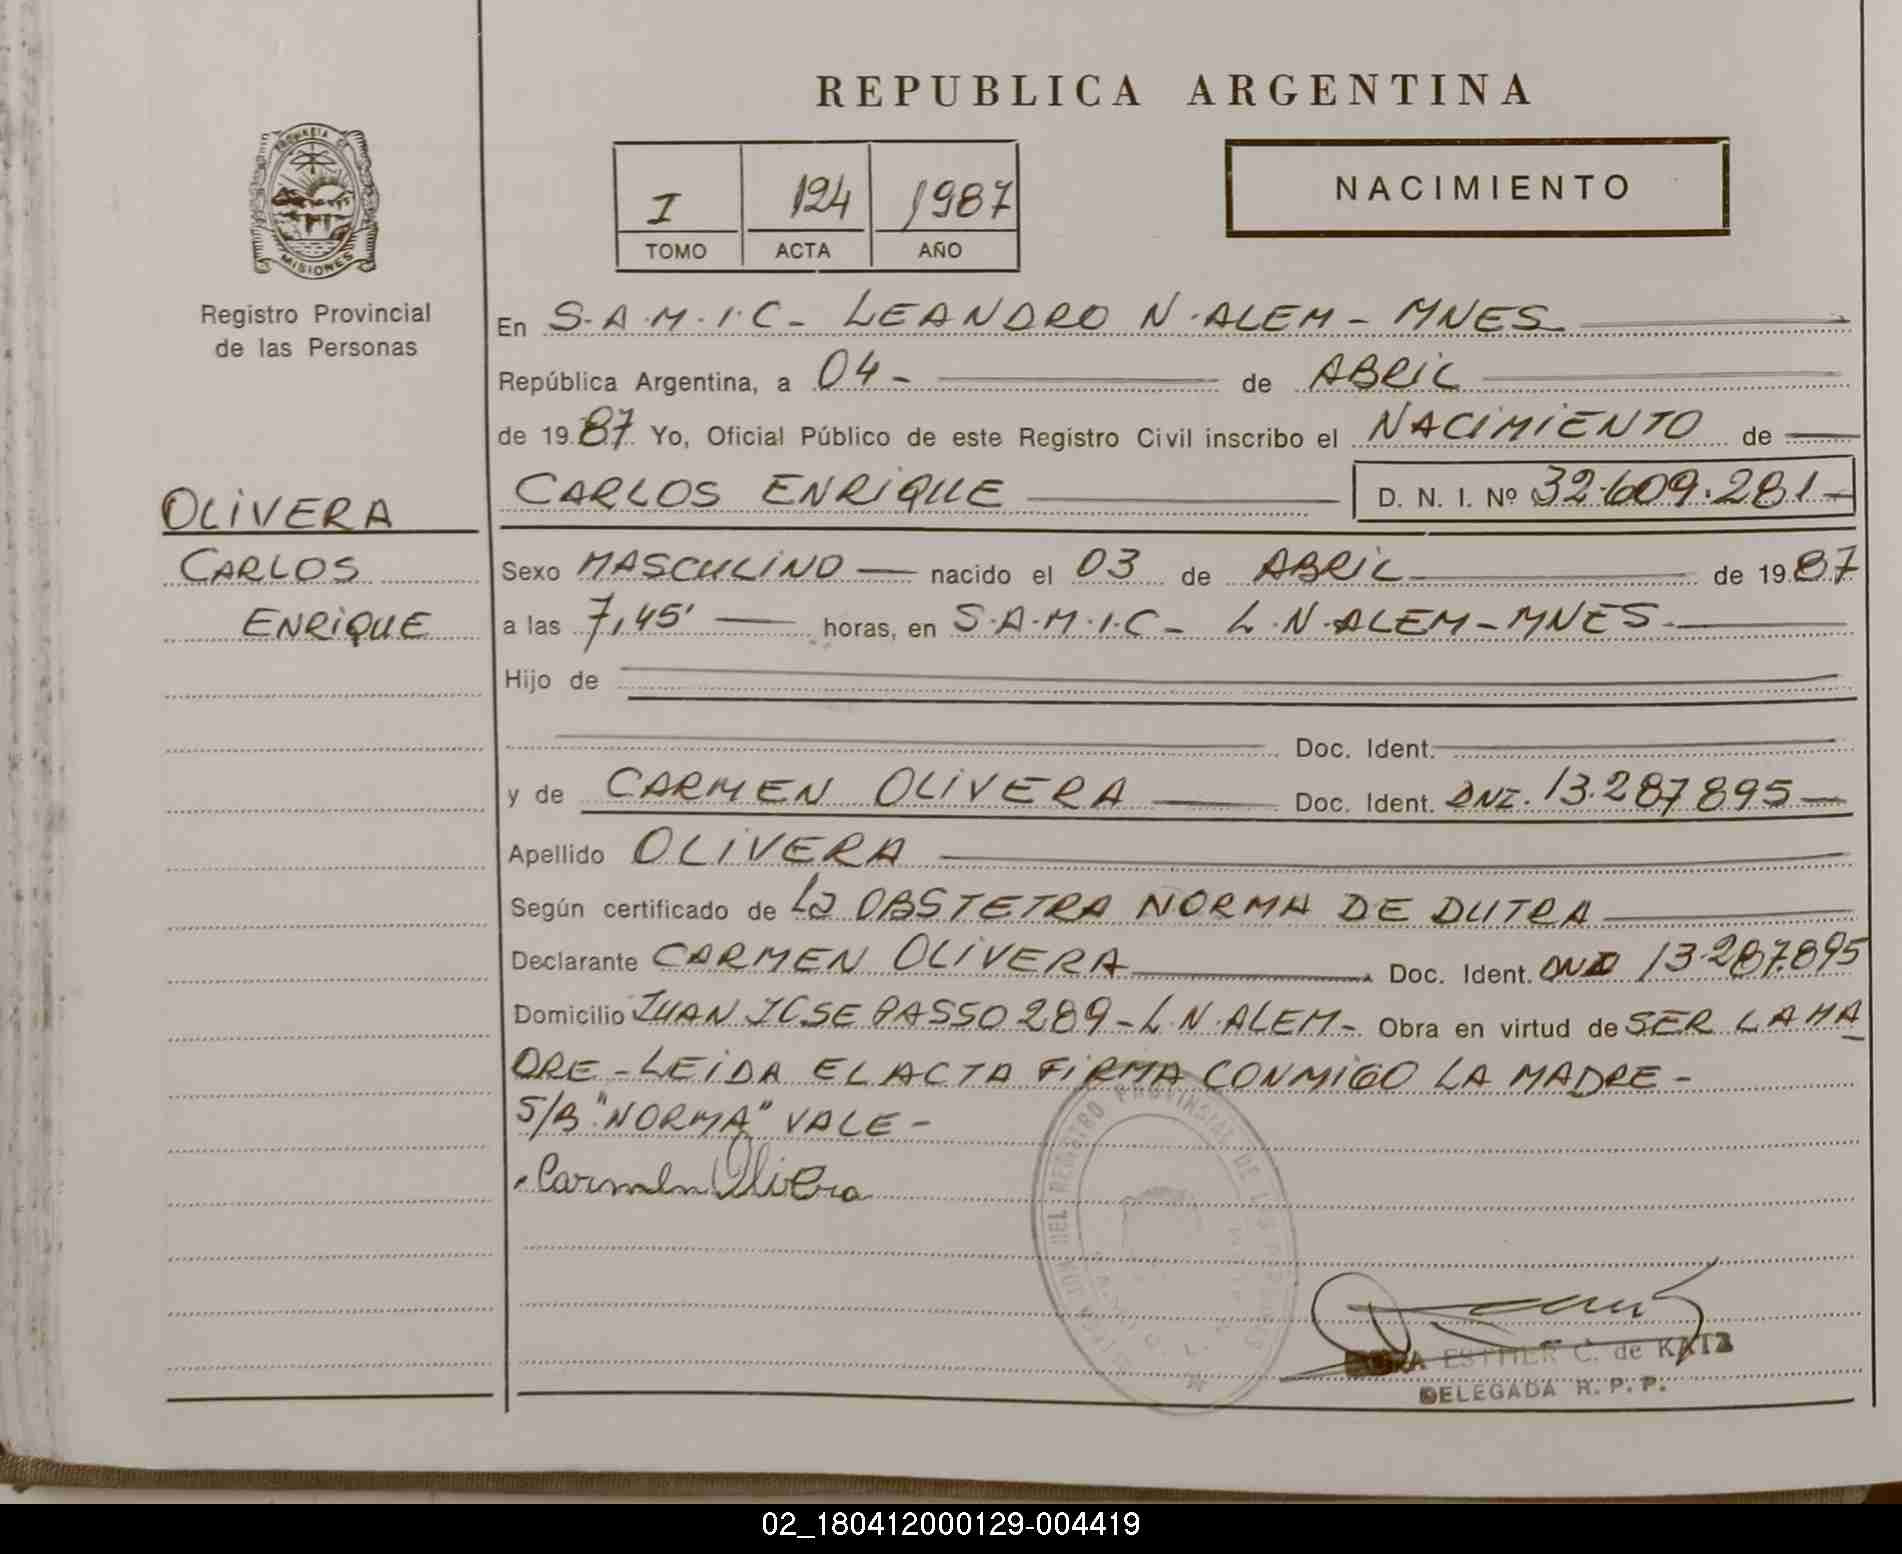 REPUBLICA ARGENTINA
PROVINCIA DE
MISIONES
Registro Provincial
de las Personas
I 124 1987
TOMO ACTA AÑO
NACIMIENTO
En S.A.M.I.C- LEANDRO N.ALEM- MNES
República Argentina, a 04- de ABRIL
de 1987 Yo, Oficial Público de este Registro Civil inscribo el NACIMIENTO de
OLIVERA
CARLOS
ENRIQUE
CARLOS ENRIQUE D. N. I. Nº 32.609.281-
Sexo MASCULINO nacido el 03 de ABRIL de 1987
a las 7,45' horas, en S.A.M.I.C- L.N.ALEM-MNES
Hijo de
Doc. Ident.
y de CARMEN OLIVERA Doc. Ident. DNI. 13.287895-
Apellido OLIVERA
Según certificado de La OBSTETRA NORMA DE DUTRA
Declarante CARMEN OLIVERA Doc. Ident. DNI 13.287.895
Domicilio JUAN JOSE PASSO 289-L.N.ALEM- Obra en virtud de SER LA MA
DRE-LEIDA EL ACTA FIRMA CONMIGO LA MADRE-
S/B "NORMA" VALE-
Carmen Olivera
DEL REGISTRO PROVINSIAL DE
ESTHER C. de KATZ
DELEGADA R. P. P.
02_180412000129-004419